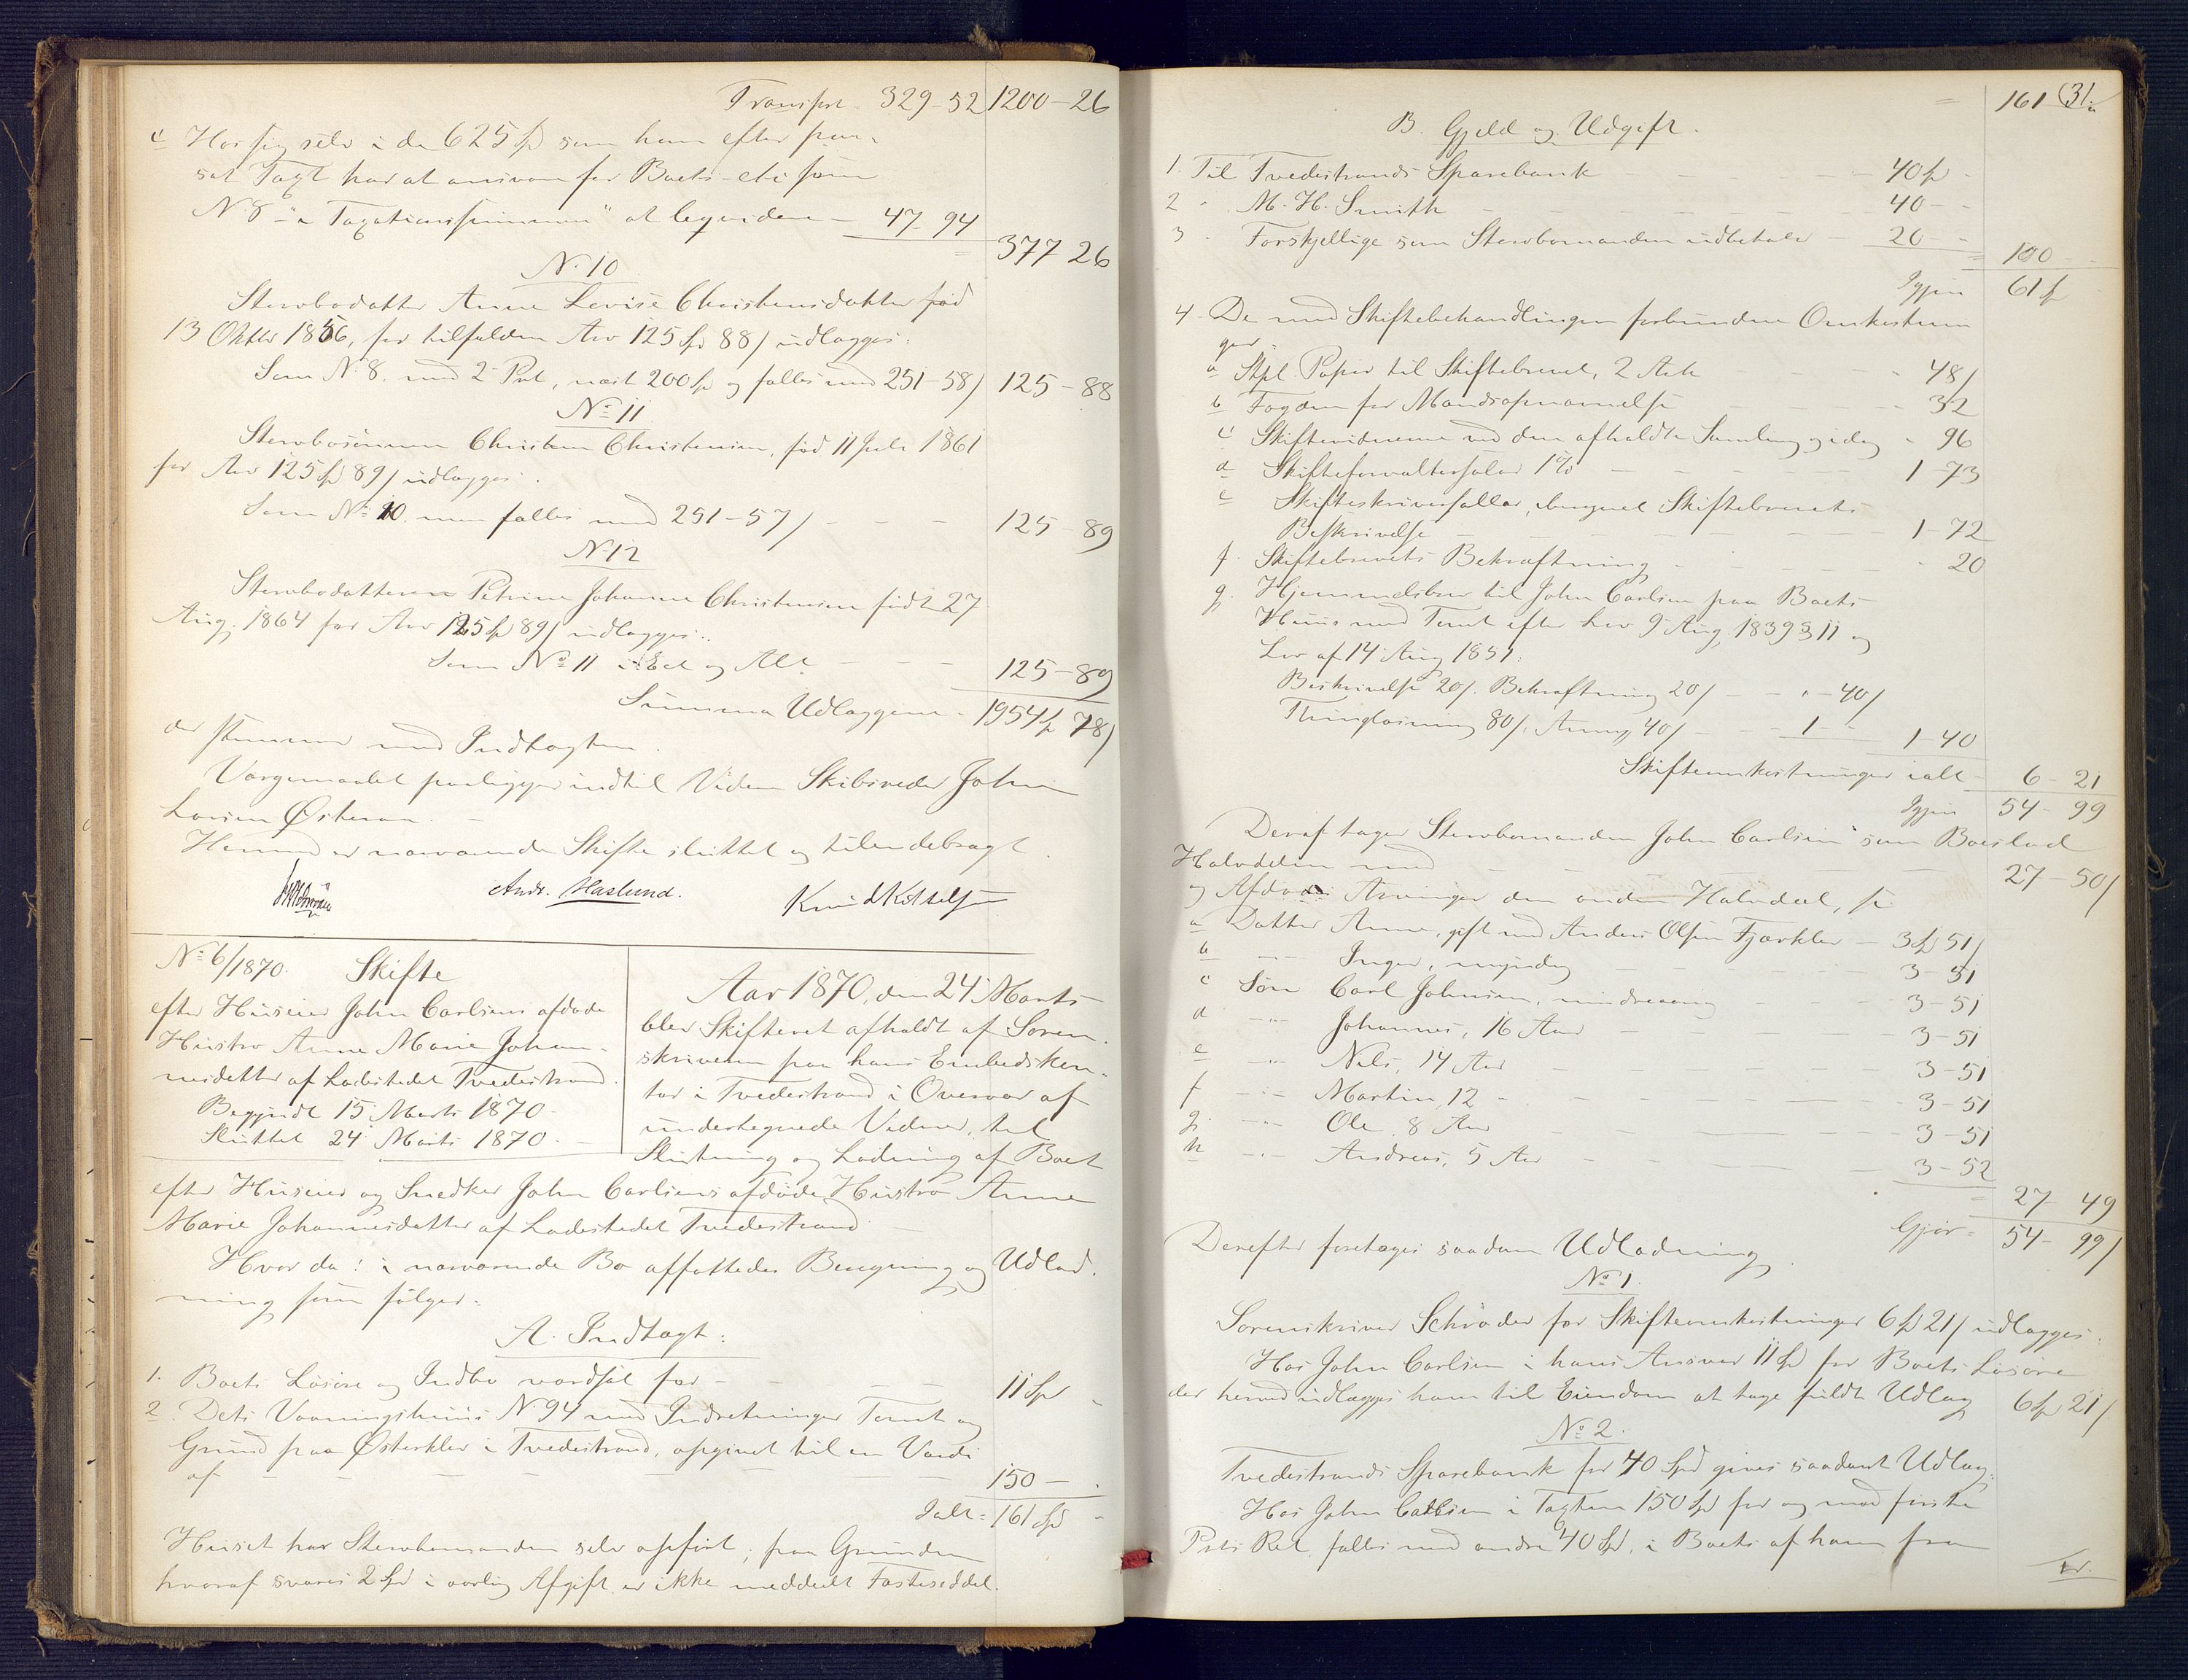 Transport 329-52 1200-26
c Hos sig selv i de 625 Spd som han efter paa-
sat Taxt har at ansvare for Boets eie som
N 8 - "a Taxationssummen" at begynde - 47-94
377 26
N. 10
Stervbodatter Anne Lovise Christensdatter fød
13 Oktbr 1856, for tilfalden Arv 125 Spd 88/ udlægges:
Som N. 8. med 2 Prt, næst 200 Sp og fælles med 251-58/ 125-88
No 11
Stervbosønnen Christen Christensen, fød 11 Juli 1861
for Arv 125 Spd 89/ udlægges:
Som No 10. men fælles med 251-57/ - - - 125-89
N. 12
Stervbodatteren Petrine Johanne Christensen født 27
Aug. 1864 for Arv 125 Spd 89/ udlægges:
Som No 11 i Eet og Alt - - - 125-89
Summa Udlæggene - 1954 Sp 78/
der stemmer med Indtægten.
Værgemaalet paaligger indtil Videre Skibsreder John
Larsen Østeraa. -
Hermed er nærværende Skifte sluttet og tilendebragt.
Andr. Haslund. Knud Ketelsen
No 6/1870. Skifte
efter Huseier John Carlsens afdøde
Hustro Anne Marie Johan-
nesdatter af Ladestedet Tvedestrand.
Begyndt 15 Marts 1870.
Sluttet 24 Marts 1870. -
Aar 1870, den 24 Marts
blev Skifteret afholdt af Soren-
skriveren paa hans Embedskon-
tor i Tvedestrand i Overvær af
undertegnede Vidner, til
Slutning og Lodning af Boet
efter Huseier og Snedker John Carlsens afdøde Hustro Anne
Marie Johannesdatter af Ladestedet Tvedestrand.
Hvor da: i nærværende Bo affattedes Beregning og Udlod-
ning som følger:
A. Indtægt:
1. Boets Løsøre og Indbo værdsat for - - - 11 Spd -
2. Dets Vaaningshuus N. 94 med Indretninger Tomt og
Grund paa Østerkler i Tvedestrand, opgivet til en Værdi
af - - - - 150 - .
Ialt = 161 Spd -
Huset har Stervbomanden selv opført; paa Grunden
hvoraf svares 2 Spd i aarlig Afgift er ikke meddeelt Fæsteseddel.
161 (31.
B. Gjeld og Udgift.
1. Til Tvedestrands Sparebank - - - 40 Sp -
2 - M. H. Smith - - - 40 - -
3 - Forskjellige som Stervbomanden udbetaler - 20 - -
100 - -
Igjen 61 Sp
4. De med Skiftebehandlingen forbundne Omkostnin
ger:
a Stpl. Papir til Skiftebrevet, 2 Ark - - - 48/
b Fogden for Mandsopnævnelse - - - 32
c Skiftevidnerne ved den afholdte Samling og idag - 96
d Skifteforvaltersalær 1% - - - 1-73
e Skifteskriversallær, iberegnet Skiftebrevets
Beskrivelse - - - 1-72
f. Skiftebrevets Bekræftning - - - 20
g. Hjemmelsbrev til John Carlsen paa Boets
Huus med Tomt efter Lov 9 Aug, 1839 § 11 og
Lov af 14 Aug 1851:
Beskrivelse 20/. Bekræftning 20/ - - " - 40/
Thinglæsning 80/. Anmg 40/ - - - 1 - -
1-40
Skifteomkostninger ialt - 6-21
Igjen 54-99
Deraf tager Stervbomanden John Carlsen som Boeslod
Halvdelen med - - - 27-50/
og Afdødes Arvinger den anden Halvdeel, so:
a Datter Anne, gift med Anders Olsen Fjærkler - 3 Sp 51/
b -"- Inger, myndig - - - 3-51
c Søn Carl Johnsen, mindreaarig - - - 3-51
d -"- Johannes, 16 Aar - - - 3-51
e -"- Nils, 14 Aar - - - 3-51
f -"- Martin, 12 - - - 3-51
g. -"- Ole 8 Aar - - - 3-51
h -"- Andreas, 5 Aar - - - 3-52
27 49
Gjør = 54-99/
Derefter foretages saadan Udlodning.
No 1.
Sorenskriver Schrøder for Skifteomkostninger 6 Sp 21/ udlægges:
Hos John Carlsen i hans Ansvar 11 Spd for Boets Løsøre
der herved udlægges ham til Eiendom at tage fuldt Udlæg 6 Sp 21/
No 2.
Tvedestrands Sparebank for 40 Spd gives saadant Udlæg:
Hos John Carlsen i Taxten 150 Spd for og med første
Prts Ret, fælles med andre 40 Spd, i Boets af ham fra